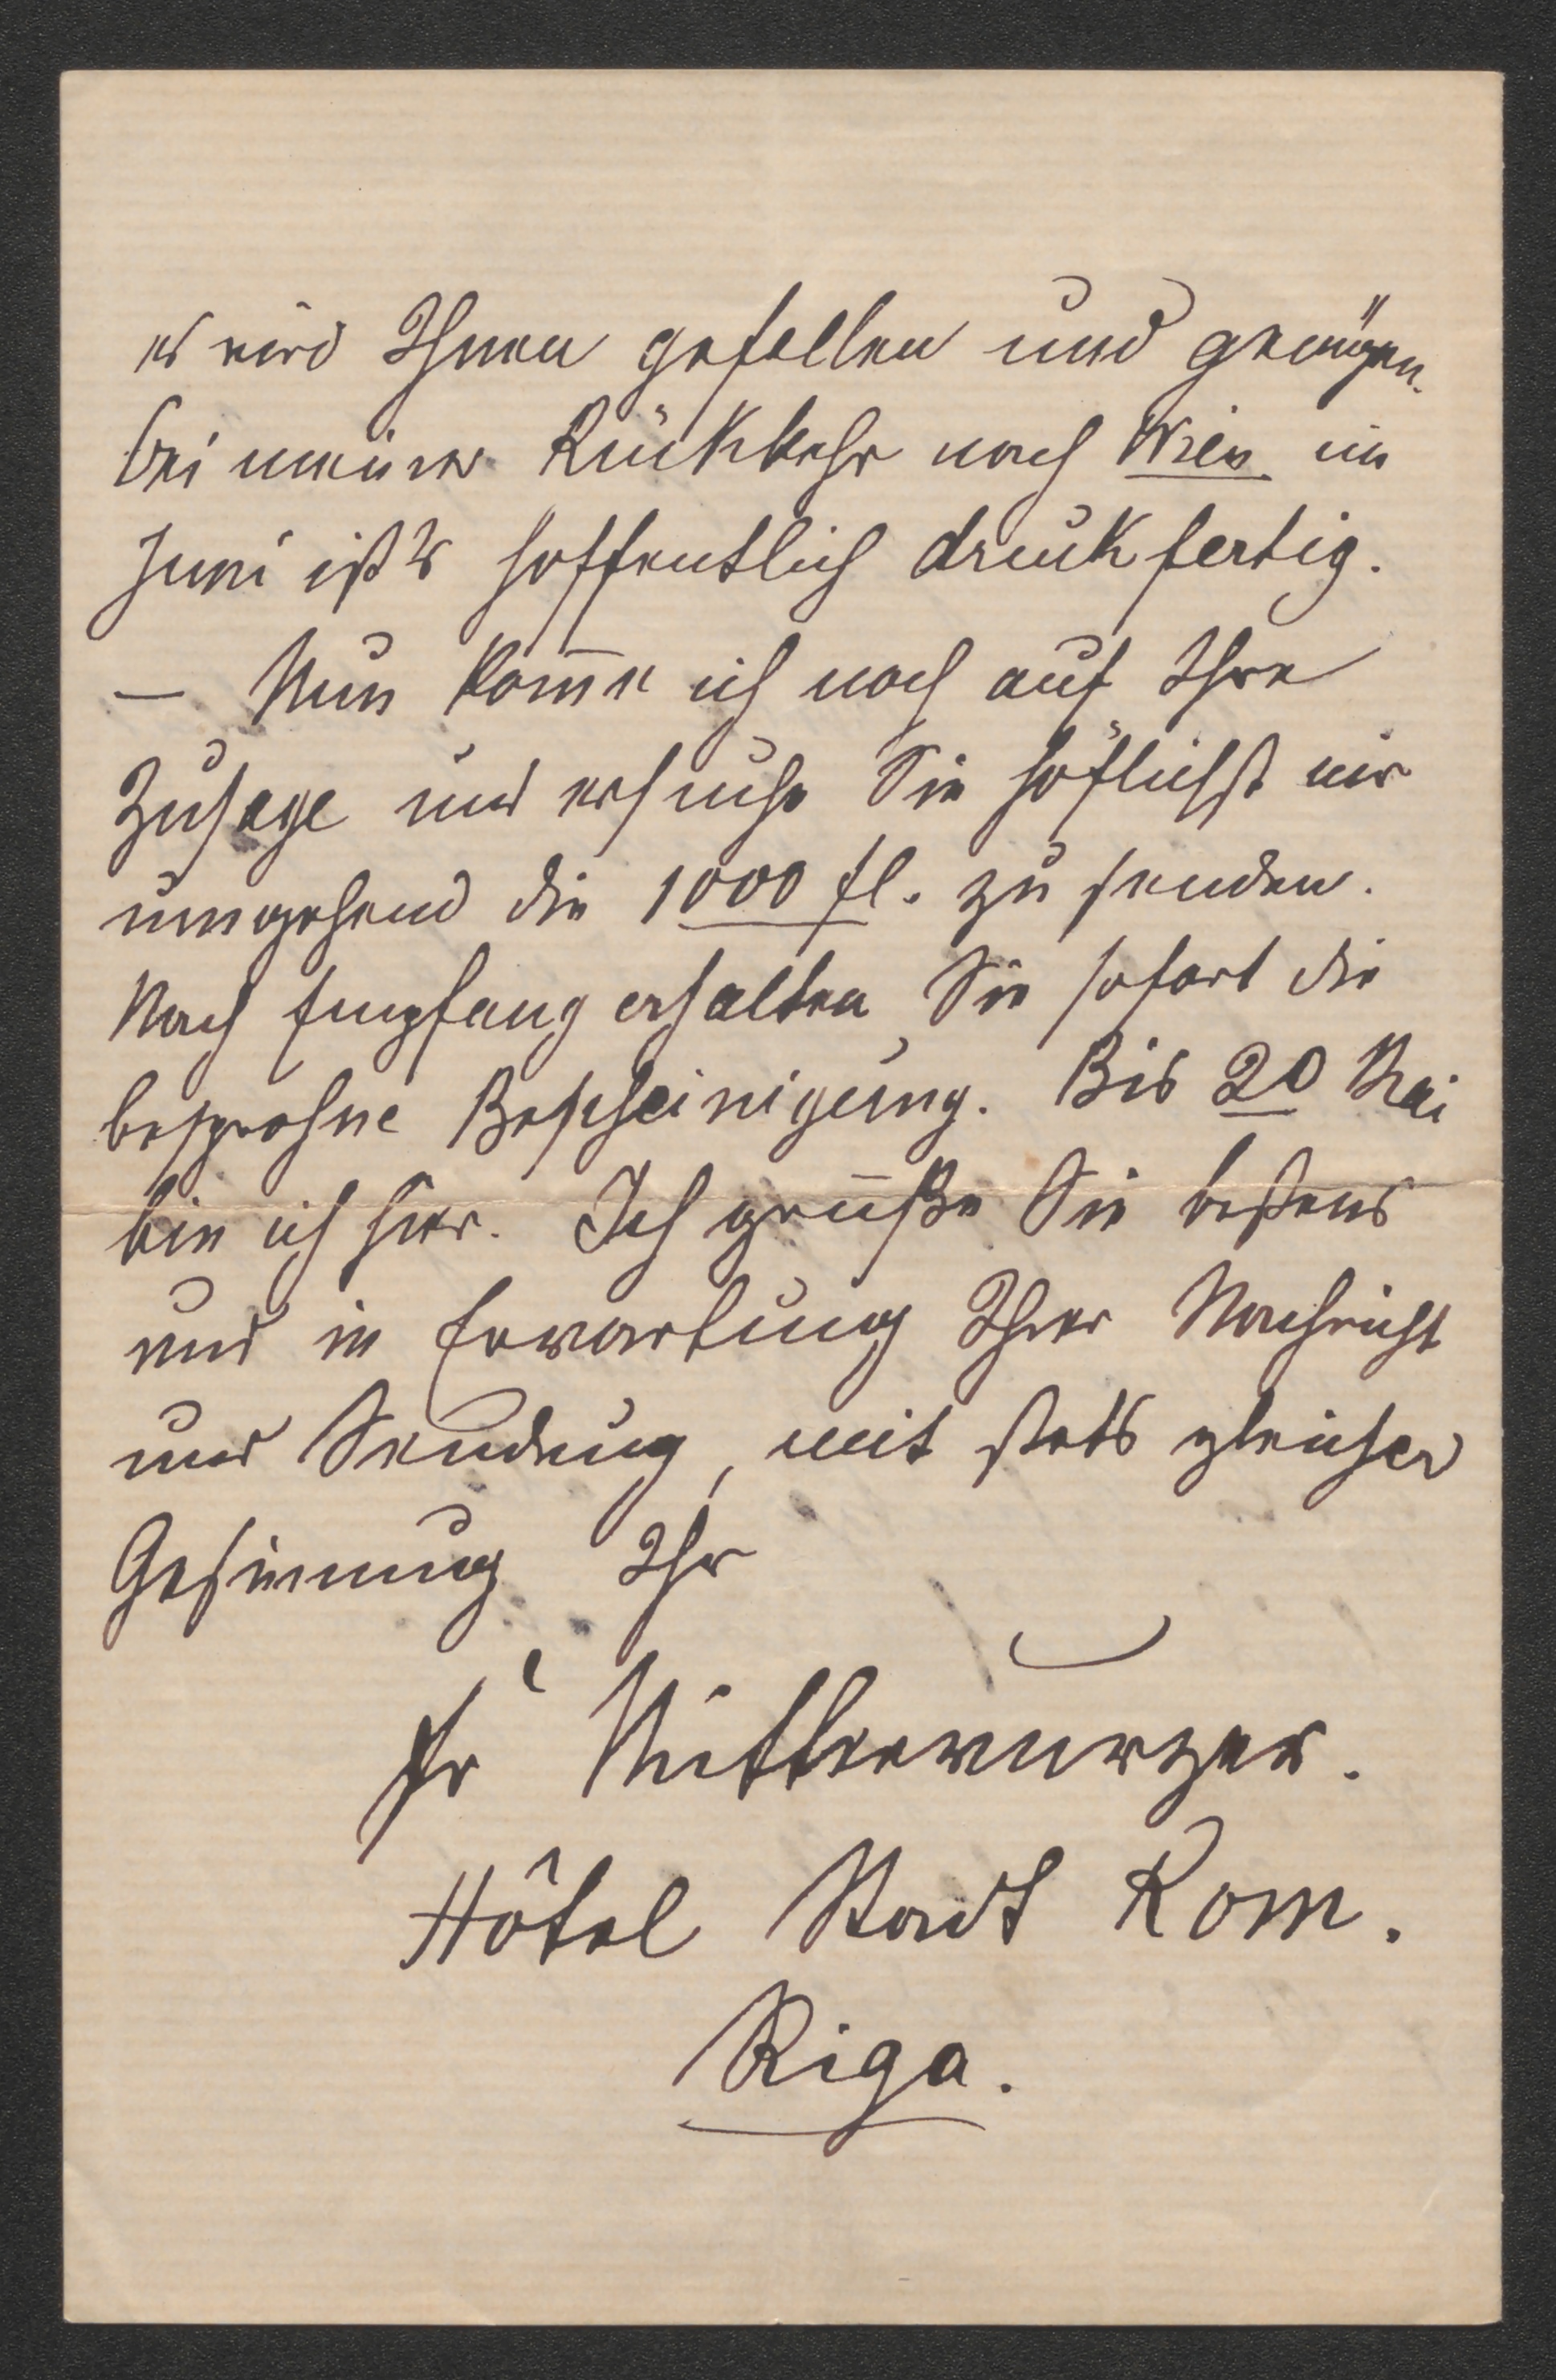 es wird Ihnen gefallen und genügen.
bei meiner Rückkehr nach Wien im
Juni ist's hoffentlich druckfertig.
— Nun kom̅e ich noch auf Ihre
Zusage und ersuche Sie höflichst mir
umgehend die 1000 fl. zu senden.
Nach Empfang erhalten Sie sofort die
besprochne Bescheinigung. Bis 20 Mai
bin ich hier. Ich grüße Sie bestens
und in Erwartung Ihrer Nachricht
und Sendung, mit stets gleicher
Gesinnung Ihr
Fr Mitterwurzer.
Hôtel Stadt Rom.
Riga.